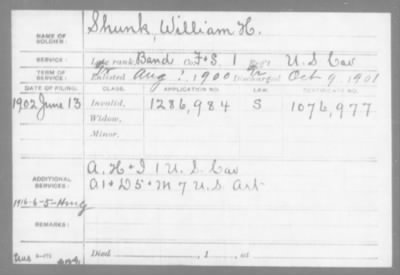 NAME OF SOLDIER: Shunk, William H.
SERVICE: Late rank, Band Co. F+S. 1 Reg't U.S Cav
TERM OF SERVICE: Enlisted Aug ?, 1900 Discharged Oct 9, 1901
DATE OF FILING. CLASS. APPLICATION NO. LAW. CERTIFICATE NO.
1902 June 13 Invalid, 1286,984 S 1076,977
Widow,
Minor.
ADDITIONAL SERVICES: A. H+I 1 U.S. Cav
A1+D5+M 7 U.S. Art
1916-6-5-
REMARKS:
Died , 1 , at